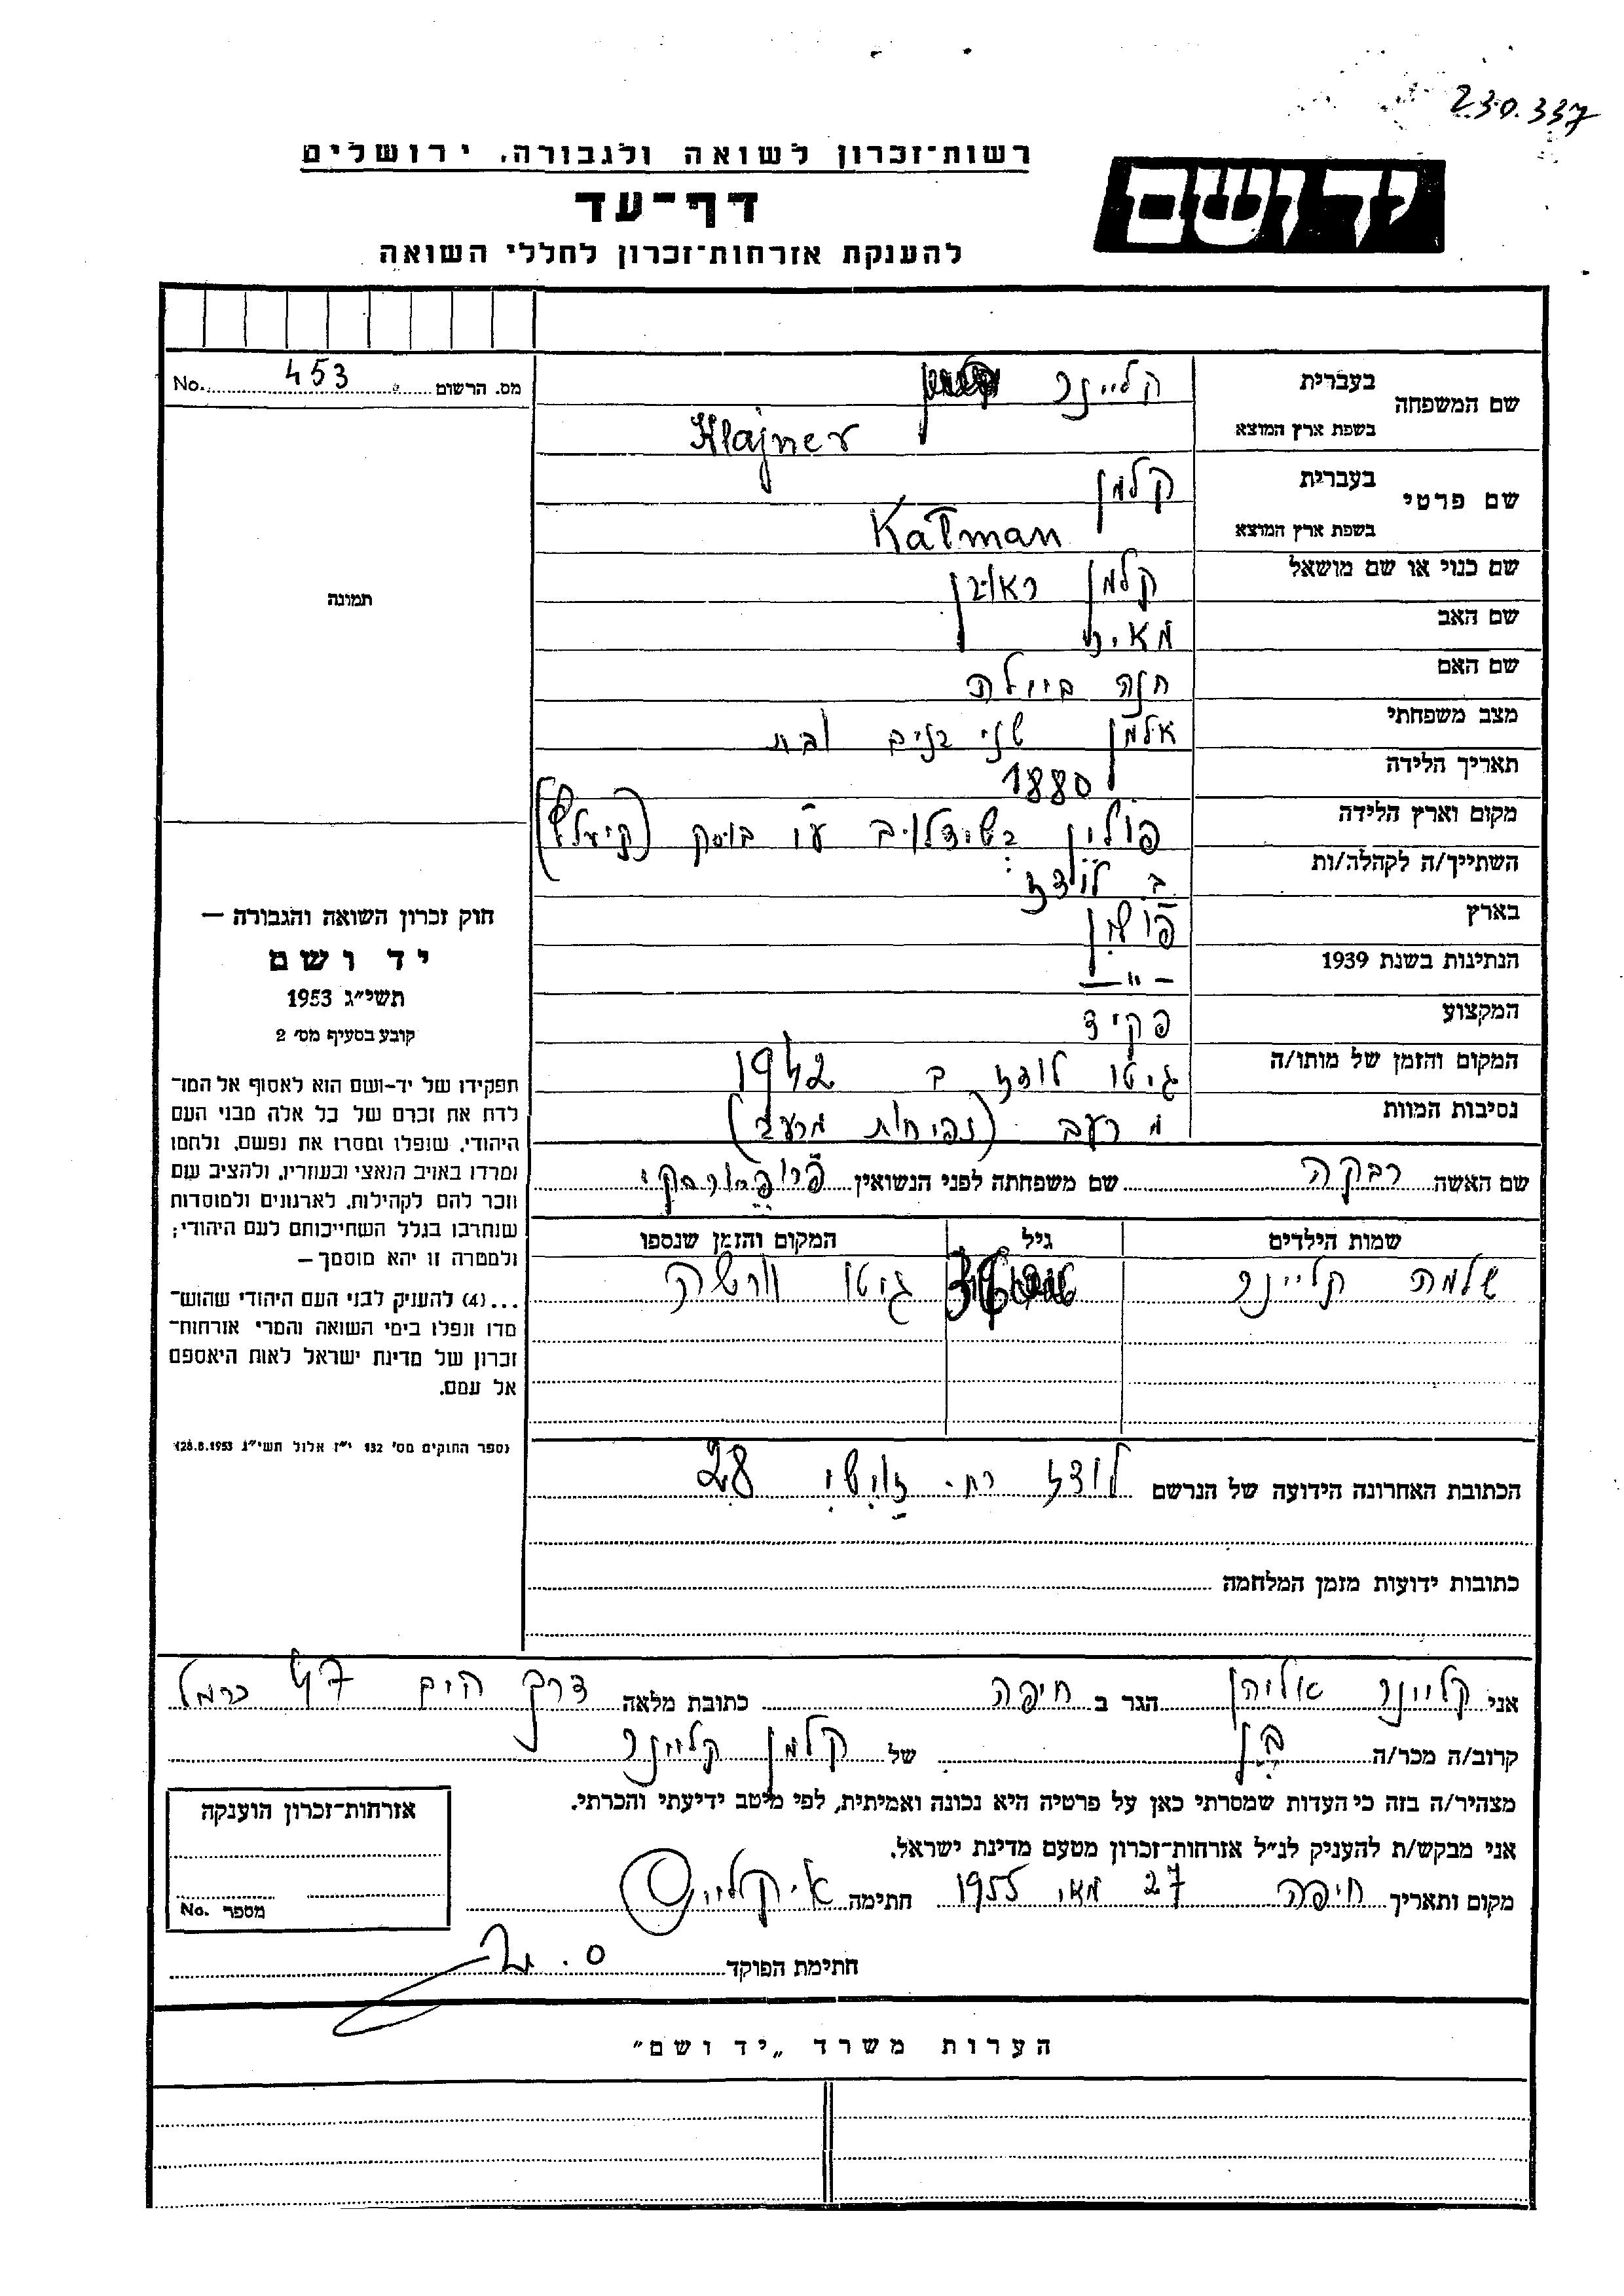 230.337
רשות־זכרון לשואה ולגבורה, ירושלים
יד ושם
דף־עד
להענקת אזרחות־זכרון לחללי השואה
מס. הרשום 453 No.
תמונה
שם המשפחה בעברית קליינר
בשפת ארץ המוצא Klajner
שם פרטי בעברית קלמן
בשפת ארץ המוצא Kalman
שם כנוי או שם מושאל קלמן ראובן
שם האב מאיר
שם האם חנה ביילה
מצב משפחתי אלמן שני בנים ובת
תאריך הלידה 1880
מקום וארץ הלידה פולין בשידלוב ע"י בוסק
השתייך/ה לקהלה/ות ב לודז
בארץ פולין
הנתינות בשנת 1939 — " —
המקצוע פקיד
המקום והזמן של מותו/ה גיטו לודז ב 1942
נסיבות המוות מ רעב (נפיחות מרעב)
שם האשה רבקה שם משפחתה לפני הנשואין
שמות הילדים גיל המקום והזמן שנספו
שלמה קליינר גיטו וורשה
הכתובת האחרונה הידועה של הנרשם לודז רח. 28
כתובות ידועות מזמן המלחמה
חוק זכרון השואה והגבורה —
יד ושם
תשי״ג 1953
קובע בסעיף מס׳ 2
תפקידו של יד-ושם הוא לאסוף אל המו־
לדת את זכרם של כל אלה מבני העם
היהודי, שנפלו ומסרו את נפשם, נלחמו
ומרדו באויב הנאצי ובעוזריו, ולהציב שם
וזכר להם לקהילות, לארגונים ולמוסדות
שנחרבו בגלל השתייכותם לעם היהודי;
ולמטרה זו יהא מוסמך —
...(4) להעניק לבני העם היהודי שהוש־
מדו ונפלו בימי השואה והמרי אזרחות־
זכרון של מדינת ישראל לאות היאספם
אל עמם.
(ספר החוקים מס׳ 132 י״ז אלול תשי״ג 28.8.1953)
אני קליינר אליהו הגר ב חיפה כתובת מלאה דרך הים 47 כרמל
קרוב/ה מכר/ה בן של קלמן קליינר
מצהיר/ה בזה כי העדות שמסרתי כאן על פרטיה היא נכונה ואמיתית, לפי מיטב ידיעתי והכרתי.
אני מבקש/ת להעניק לנ״ל אזרחות־זכרון מטעם מדינת ישראל.
מקום ותאריך חיפה 27 מאי 1955 חתימה א. קליינר
חתימת הפוקד
אזרחות־זכרון הוענקה
מספר No.
הערות משרד „יד ושם״